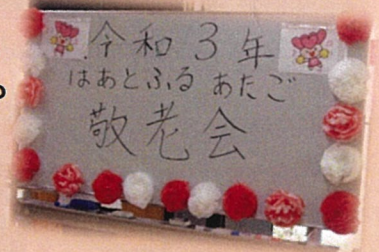 令和3年
はあとふる あたご
敬老会